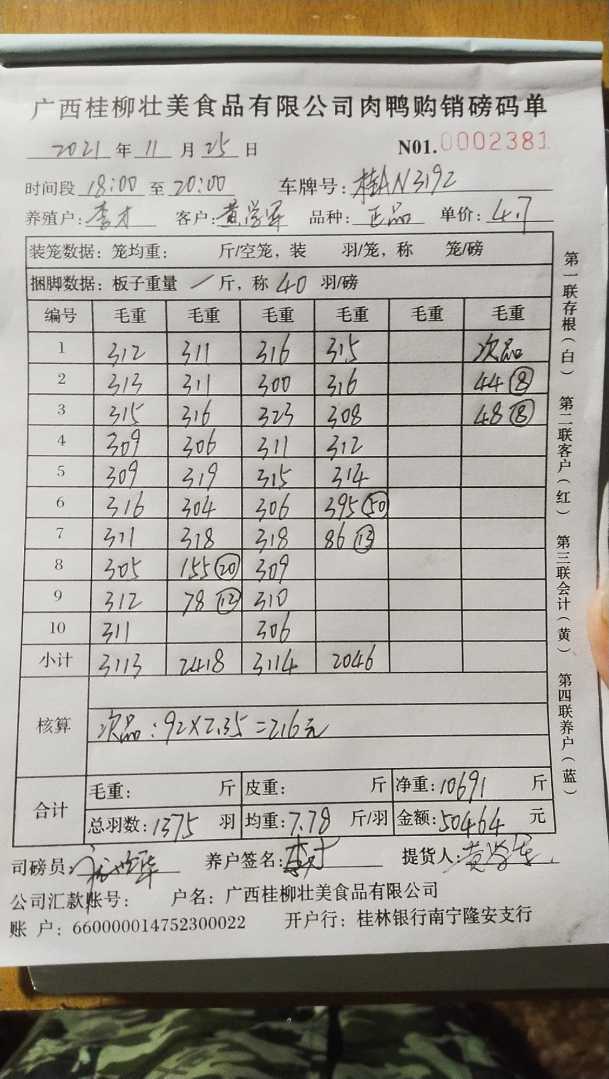 广西桂柳壮美食品有限公司肉鸭购销磅码单
2021 年 11 月 25 日 N01.0002381
时间段 18:00 至 20:00 车牌号: 桂AN3192
养殖户: 李才 客户: 黄学军 品种: 正品 单价: 4.7
装笼数据: 笼均重: 斤/空笼, 装 羽/笼, 称 笼/磅
捆脚数据: 板子重量 / 斤, 称 40 羽/磅
编号 毛重 毛重 毛重 毛重 毛重 毛重
1 312 311 316 315 次品
2 313 311 300 316 44 ⑧
3 315 316 323 308 48 ⑧
4 309 306 311 312
5 309 319 315 314
6 316 304 306 395 ㊿
7 311 318 318 86 ⑬
8 305 155 ⑳ 309
9 312 78 ⑫ 310
10 311 306
小计 3113 2418 3114 2046
核算 次品: 92×2.35=216元
合计 毛重: 斤 皮重: 斤 净重: 10691 斤
总羽数: 1375 羽 均重: 7.78 斤/羽 金额: 50464 元
司磅员: 养户签名: 李才 提货人: 黄学军
公司汇款账号: 户名: 广西桂柳壮美食品有限公司
账 户: 660000014752300022 开户行: 桂林银行南宁隆安支行
第一联存根(白) 第二联客户(红) 第三联会计(黄) 第四联养户(蓝)